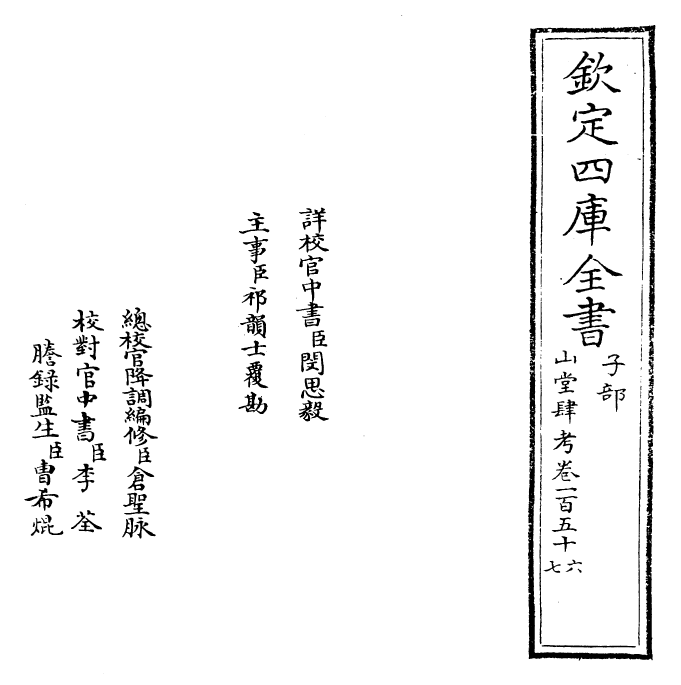 欽定四庫全書
子部
山堂肆考卷一百五十六七
詳校官中書臣閔思毅
主事臣祁韻士覆勘
總校官降調編修臣倉聖脉
校對官中書臣李荃
謄錄監生臣曹希焜